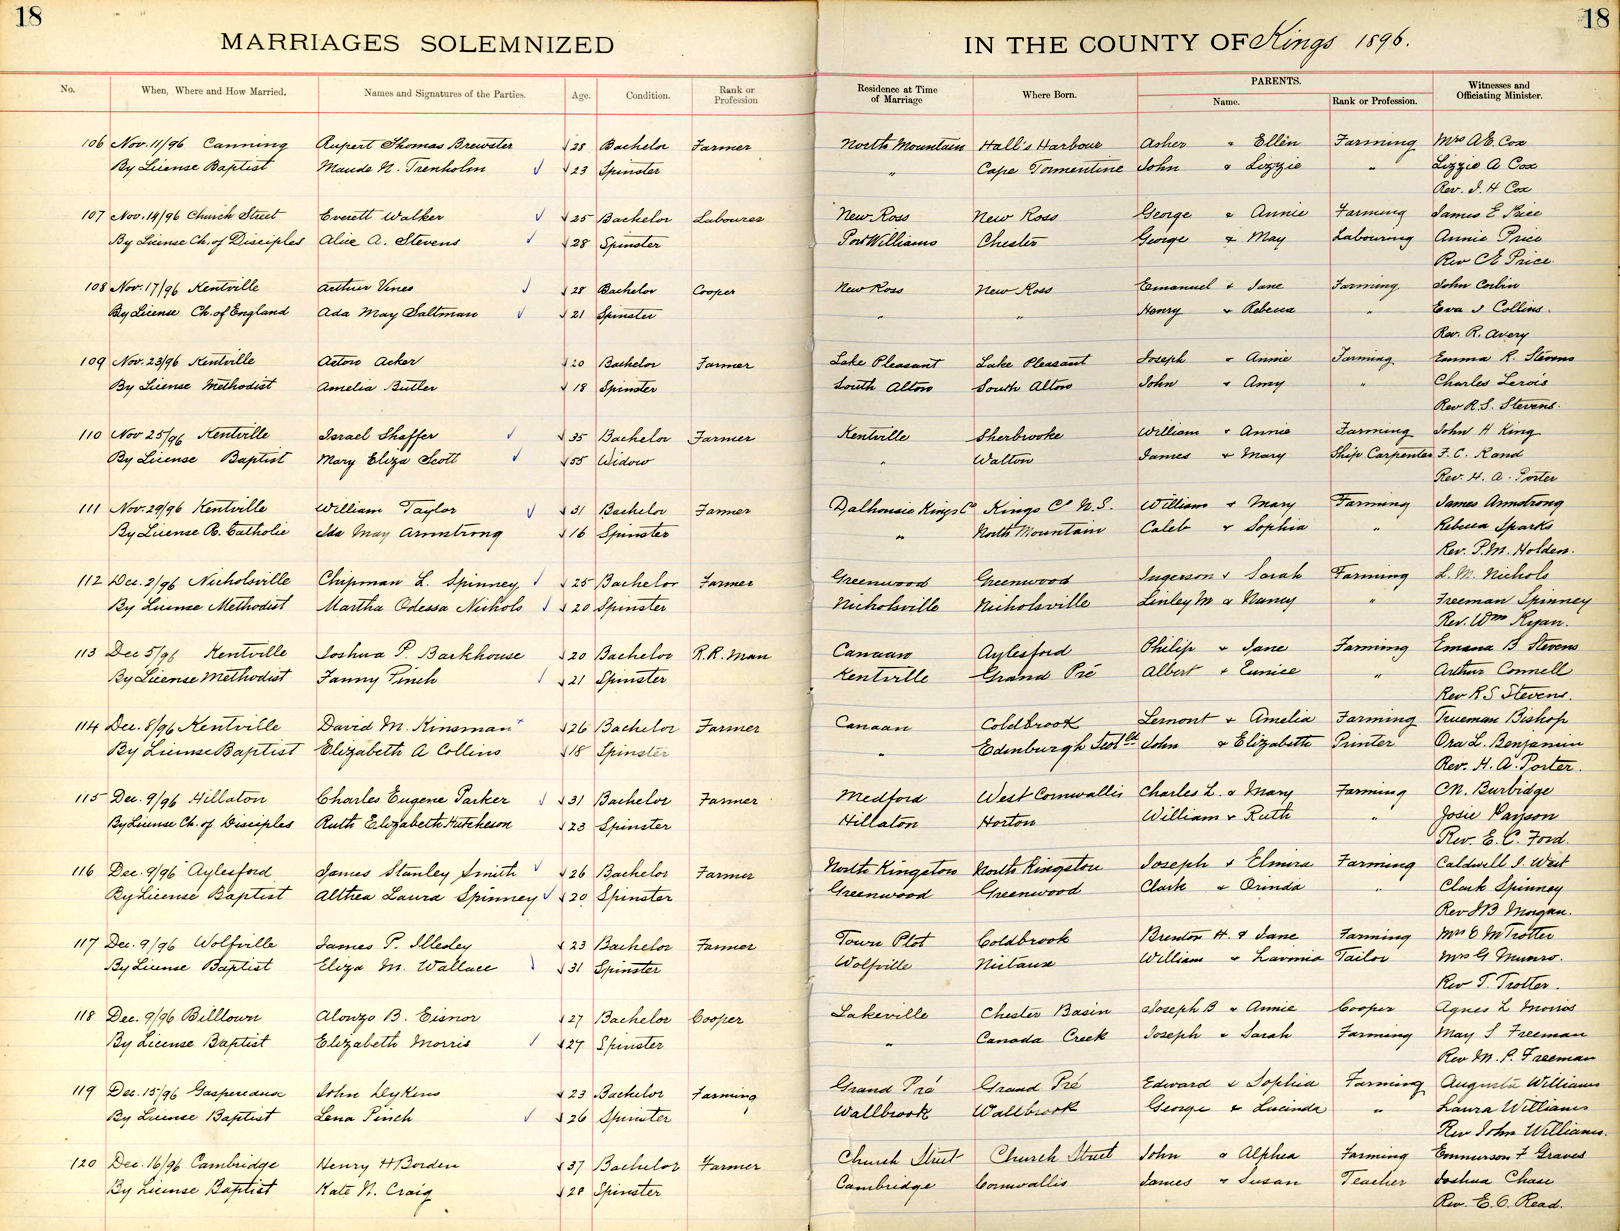 18
18
MARRIAGES SOLEMNIZED IN THE COUNTY OF Kings 1896.
No. When, Where and How Married. Names and Signatures of the Parties. Age. Condition. Rank or Profession Residence at Time of Marriage Where Born. PARENTS. Name. Rank or Profession. Witnesses and Officiating Minister.
106 Nov. 11/96 Canning Rupert Thomas Brewster 28 Bachelor Farmer North Mountain Hall's Harbour Asher " Ellen Farming Mrs A E. Cox
By License Baptist Maude N. Trenholm 23 Spinster " Cape Tormentine John & Lizzie " Lizzie A Cox
Rev. I. H Cox
107 Nov. 14/96 Church Street Everett Walker 25 Bachelor Labourer New Ross New Ross George & Annie Farming James E Price
By License Ch. of Disciples Alice A. Stevens 28 Spinster Port Williams Chester George & May Labouring Annie Price
Rev C E Price
108 Nov. 17/96 Kentville Arthur Vines 28 Bachelor Cooper New Ross New Ross Emanuel & Jane Farming John Corbin
By License Ch. of England Ada May Saltman 21 Spinster " " Henry & Rebecca " Eva J Collins.
Rev. R. Avery
109 Nov. 23/96 Kentville Acton Acker 20 Bachelor Farmer Lake Pleasant Lake Pleasant Joseph & Annie Farming Emma R. Stevens
By License Methodist Amelia Butler 18 Spinster South Alton South Alton John & Amy " Charles Lerois
Rev R. S. Stevens.
110 Nov 25/96 Kentville Israel Shaffer 35 Bachelor Farmer Kentville Sherbrooke William & Annie Farming John H King
By License Baptist Mary Eliza Scott 55 Widow " Walton James & Mary Ship Carpenter F. C. Rand
Rev. H. A. Porter
111 Nov. 29/96 Kentville William Taylor 31 Bachelor Farmer Dalhousie Kings Co Kings Co N.S. William & Mary Farming James Armstrong
By License R. Catholic Ida May Armstrong 16 Spinster " North Mountain Caleb & Sophia " Rebecca Sparks
Rev. P. M. Holden.
112 Dec. 2/96 Nicholsville Chipman L. Spinney 25 Bachelor Farmer Greenwood Greenwood Ingerson & Sarah Farming L. M. Nichols
By License Methodist Martha Odessa Nichols 20 Spinster Nicholsville Nicholsville Linley M & Nancy " Freeman Spinney
Rev. Wm Ryan.
113 Dec 5/96 Kentville Joshua P. Barkhouse 20 Bachelor R.R. Man Canaan Aylesford Philip & Jane Farming Emma B Stevens
By License Methodist Fanny Pinch 21 Spinster Kentville Grand Pré Albert & Eunice " Arthur Connell
Rev R. S Stevens.
114 Dec. 8/96 Kentville David M. Kinsman 26 Bachelor Farmer Canaan Coldbrook Lemont & Amelia Farming Trueman Bishop
By License Baptist Elizabeth A Collins 18 Spinster " Edenburgh Scotld John & Elizabeth Printer Ora L. Benjamin
Rev. H. A. Porter.
115 Dec. 9/96 Hillaton Charles Eugene Parker 31 Bachelor Farmer Medford West Cornwallis Charles L. & Mary Farming C N. Burbidge
By License Ch. of Disciples Ruth Elizabeth Hutcheson 23 Spinster Hillaton Horton William & Ruth " Josie Payson
Rev. E. C. Ford.
116 Dec. 9/96 Aylesford James Stanley Smith 26 Bachelor Farmer North Kingston North Kingston Joseph & Elmira Farming Caldwell J. West
By License Baptist Althea Laura Spinney 20 Spinster Greenwood Greenwood Clark & Orinda " Clark Spinney
Rev J B Morgan.
117 Dec. 9/96 Wolfville James P. Illsley 23 Bachelor Farmer Town Plot Coldbrook Brenton H. & Jane Farming Mrs E M Trotter
By License Baptist Eliza M. Wallace 31 Spinster Wolfville Nictaux William & Lavinia Tailor Mrs G Munro.
Rev T. Trotter.
118 Dec. 9/96 Billtown Alonzo B. Eisnor 27 Bachelor Cooper Lakeville Chester Basin Joseph B & Annie Cooper Agnes L Morris
By License Baptist Elizabeth Morris 27 Spinster " Canada Creek Joseph & Sarah Farming May S Freeman
Rev M. P. Freeman
119 Dec. 15/96 Gaspereaux John Dykens 23 Bachelor Farming Grand Pré Grand Pré Edward & Sophia Farming Augusta Williams
By License Baptist Lena Pinch 26 Spinster Wallbrook Wallbrook George & Lucinda " Laura Williams
Rev John Williams.
120 Dec. 16/96 Cambridge Henry H Borden 37 Bachelor Farmer Church Street Church Street John & Alphea Farming Emmerson F Graves
By License Baptist Kate N. Craig 28 Spinster Cambridge Cornwallis James & Susan Teacher Joshua Chase
Rev. E. O. Read.